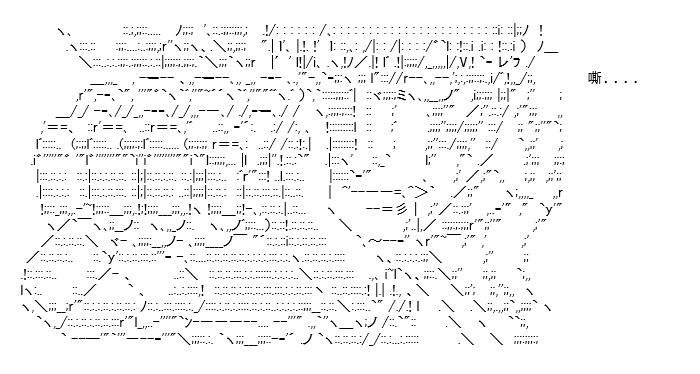 嘶．．．．